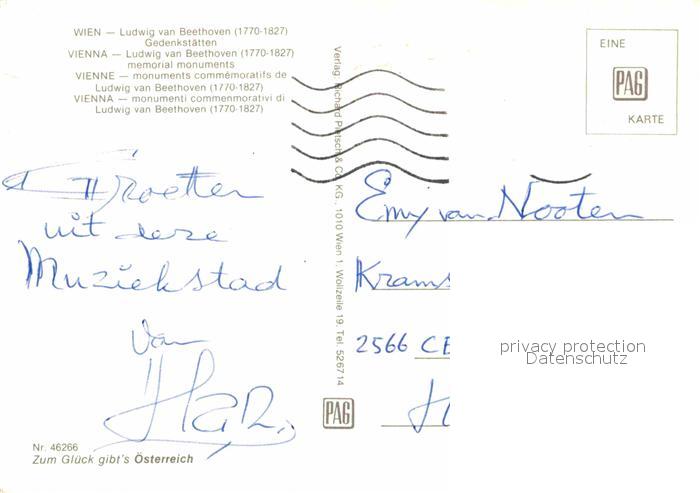 WIEN — Ludwig van Beethoven (1770-1827)
Gedenkstätten
VIENNA — Ludwig van Beethoven (1770-1827)
memorial monuments
VIENNE — monuments commémoratifs de
Ludwig van Beethoven (1770-1827)
VIENNA — monumenti commenmorativi di
Ludwig van Beethoven (1770-1827)
Groetten
uit deze
Muziekstad
van
Nr. 46266
Zum Glück gibt's Österreich
Verlag Richard Pietsch & Co. KG., 1010 Wien 1, Wollzeile 19, Tel. 526714
PAG
EINE
PAG
KARTE
Emy van Nooten
Krams
2566 CE
privacy protection
Datenschutz